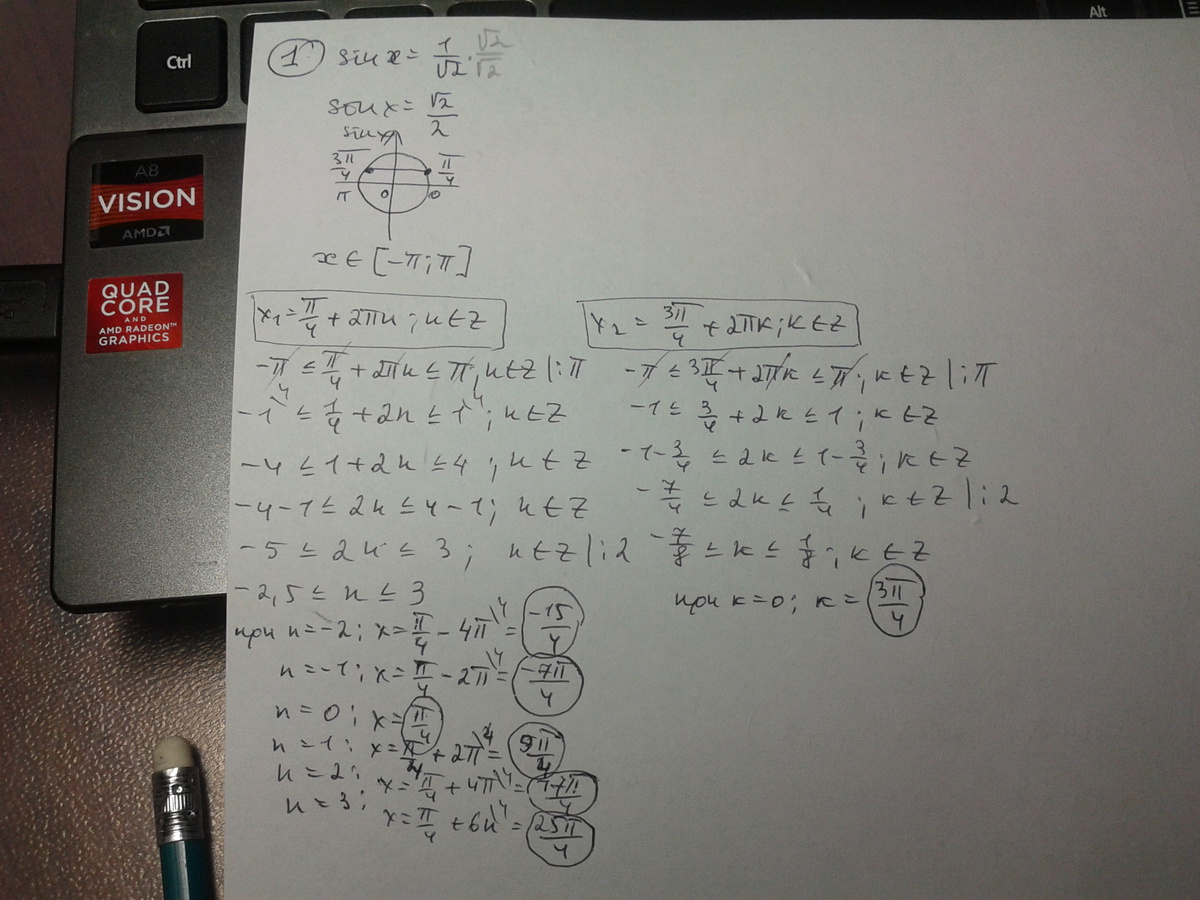 Ctrl
Alt
A8
VISION
AMD
QUAD
CORE
AND
AMD RADEON™
GRAPHICS
1. sin x = 1/√2 · √2/√2
sin x = √2/2
sin x
3π/4 π/4
π 0 0
x ∈ [-π; π]
x₁ = π/4 + 2πn; n ∈ Z
-π ≤ π/4 + 2πn ≤ π; n ∈ Z |:π
-1\4 ≤ 1/4 + 2n ≤ 1\4; n ∈ Z
-4 ≤ 1 + 2n ≤ 4; n ∈ Z
-4-1 ≤ 2n ≤ 4-1; n ∈ Z
-5 ≤ 2n ≤ 3; n ∈ Z |:2
-2,5 ≤ n ≤ 3
при n = -2; x = π/4 - 4π\4 = -15/4
n = -1; x = π/4 - 2π\4 = -7π/4
n = 0; x = π/4
n = 1; x = π/4 + 2π\4 = 9π/4
n = 2; x = π/4 + 4π\4 = 17π/4
n = 3; x = π/4 + 6π\4 = 25π/4
x₂ = 3π/4 + 2πk; k ∈ Z
-π ≤ 3π/4 + 2πk ≤ π; k ∈ Z |:π
-1 ≤ 3/4 + 2k ≤ 1; k ∈ Z
-1-3/4 ≤ 2k ≤ 1-3/4; k ∈ Z
-7/4 ≤ 2k ≤ 1/4; k ∈ Z |:2
-7/8 ≤ k ≤ 1/8; k ∈ Z
при k = 0; k = 3π/4